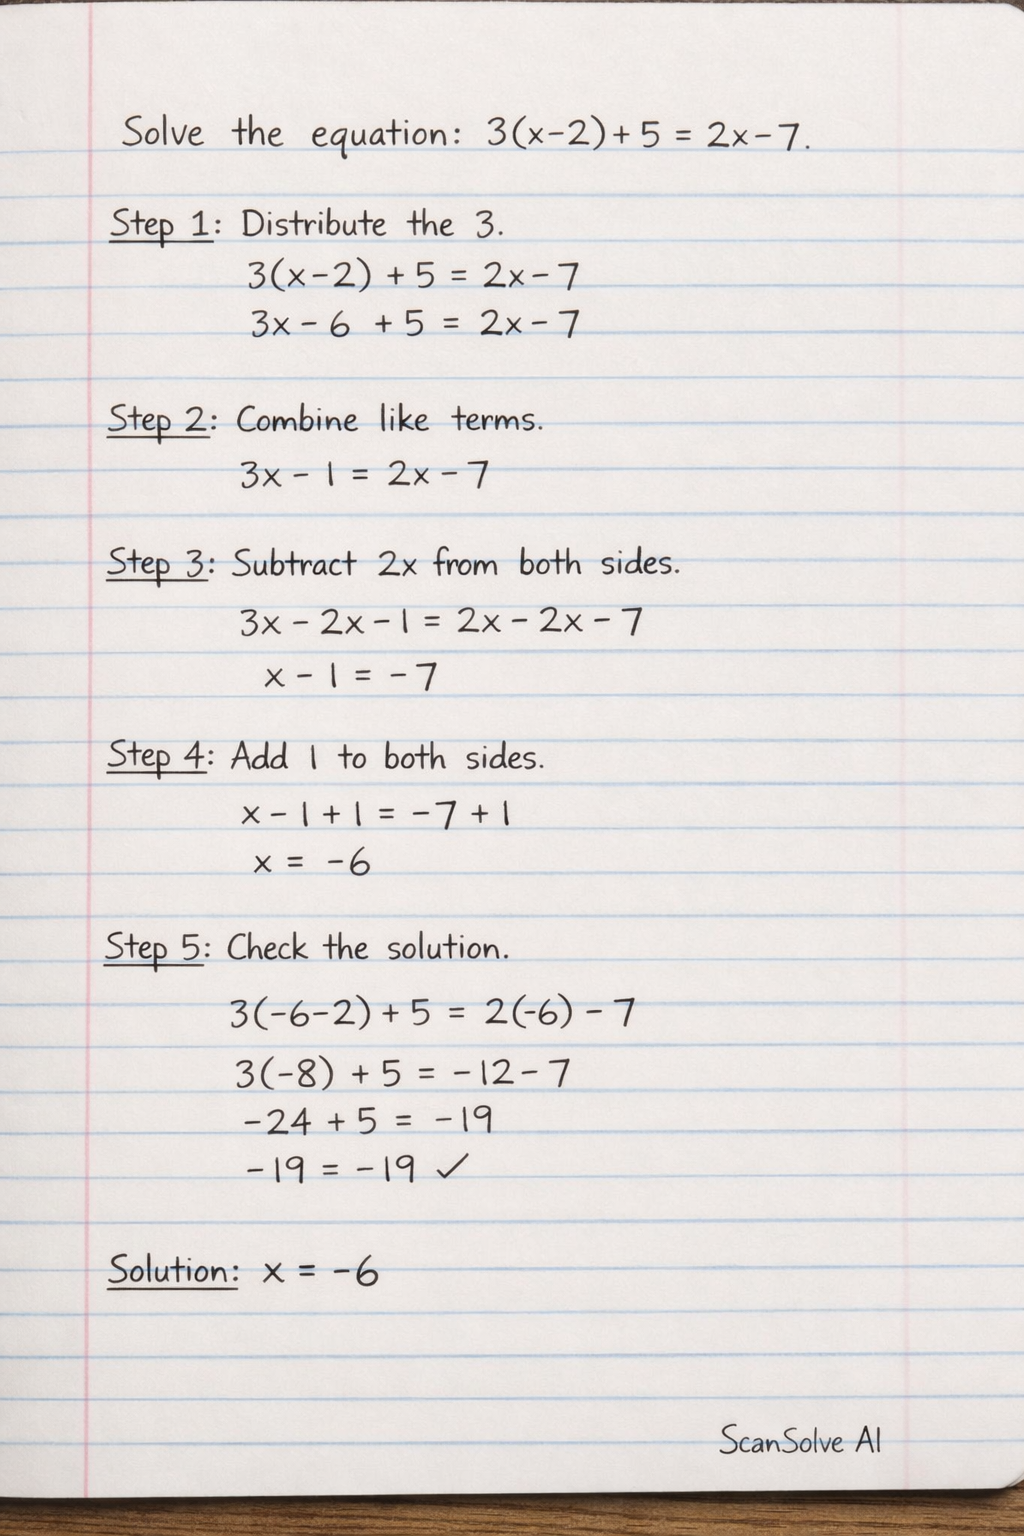 Solve the equation: 3(x-2)+5 = 2x-7.
Step 1: Distribute the 3.
3(x-2) + 5 = 2x-7
3x-6 +5 = 2x-7
Step 2: Combine like terms.
3x - 1 = 2x-7
Step 3: Subtract 2x from both sides.
3x-2x-1 = 2x-2x-7
x-1 = -7
Step 4: Add 1 to both sides.
x-1+1 = -7+1
x = -6
Step 5: Check the solution.
3(-6-2)+5 = 2(-6)-7
3(-8) +5 = -12-7
-24 +5 = -19
-19 = -19 ✓
Solution: x = -6
ScanSolve AI